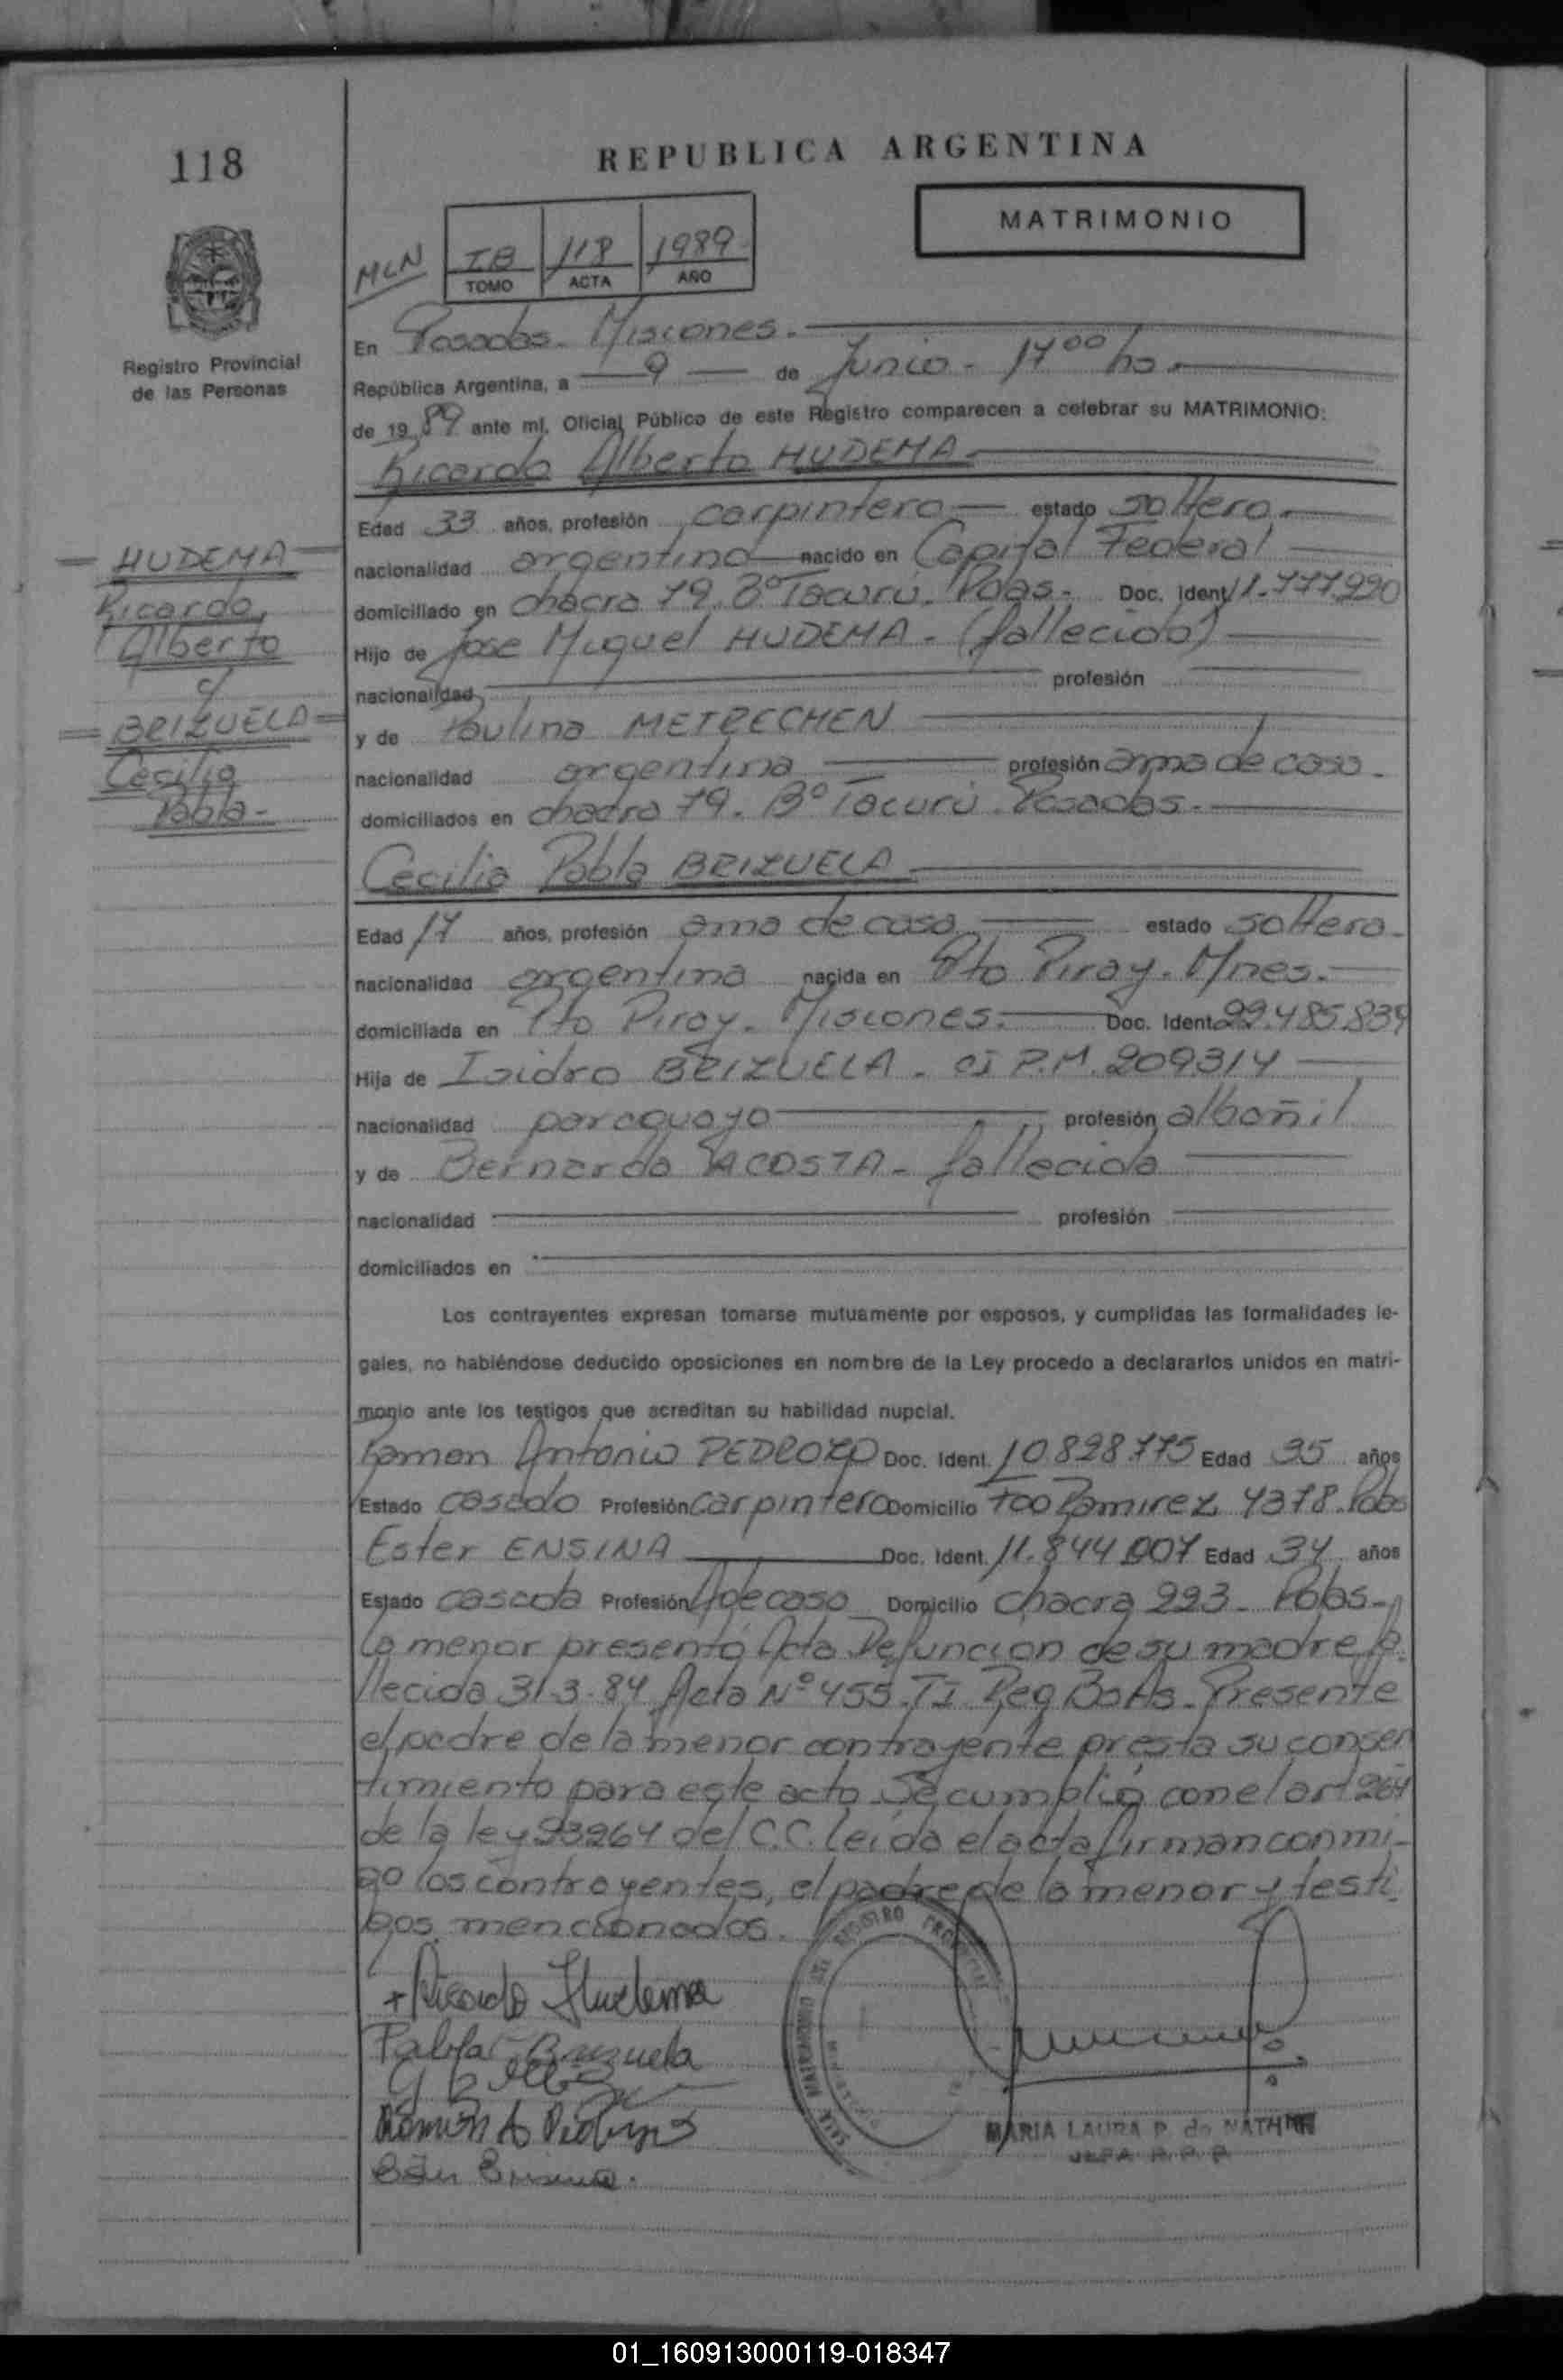 118
REPUBLICA ARGENTINA
MATRIMONIO
MLN
IB 118 1989
TOMO ACTA AÑO
Registro Provincial
de las Personas
En Posadas - Misiones.-
República Argentina, a 9 de Junio - 17 00 hs.-
de 1989 ante mí, Oficial Público de este Registro comparecen a celebrar su MATRIMONIO:
Ricardo Alberto HUDEMA.-
HUDEMA
Ricardo,
Alberto
c/
BRIZUELA
Cecilia
Pabla.-
Edad 33 años, profesión carpintero estado soltero.-
nacionalidad argentino nacido en Capital Federal
domiciliado en chacra 79. Bº Tacurú. Pdas.- Doc. Ident. 11.777.990
Hijo de Jose Miguel HUDEMA - (fallecido)
nacionalidad profesión
y de Paulina METRECHEN
nacionalidad argentina profesión ama de casa.
domiciliados en chacra 79. Bº Tacurú. Posadas.-
Cecilia Pabla BRIZUELA
Edad 17 años, profesión ama de casa estado soltera.
nacionalidad argentina nacida en Pto Piray. Mnes.
domiciliada en Pto Piray. Misiones. Doc. Ident. 22.485.839
Hija de Isidro BRIZUELA - CI P.M. 209314
nacionalidad paraguayo profesión albañil
y de Bernarda ACOSTA - fallecida
nacionalidad profesión
domiciliados en
Los contrayentes expresan tomarse mutuamente por esposos, y cumplidas las formalidades le-
gales, no habiéndose deducido oposiciones en nombre de la Ley procedo a declararlos unidos en matri-
monio ante los testigos que acreditan su habilidad nupcial.
Ramon Antonio PEDROZO Doc. Ident. 10.828.775 Edad 35 años
Estado casado Profesión carpintero Domicilio Fco Ramirez 4378. Pdas
Ester ENSINA Doc. Ident. 11.844.007 Edad 34 años
Estado casada Profesión A de casa Domicilio chacra 223 - Pdas.-
La menor presentó Acta Defuncion de su madre fa-
llecida 31-3-84 Acta Nº 455. TI Reg Bs As. Presente
el padre de la menor contrayente presta su consen
timiento para este acto. Se cumplió con el art 264
de la ley 23264 del C.C. leida el acta firman conmi-
go los contrayentes, el padre de la menor y testi
gos mencionados.
Ricardo Hudema
Pabla Brizuela
Ramón A Pedrozo
REGISTRO PROVINCIAL
MARIA LAURA P. de
JEFA R.P.P.
01_160913000119-018347